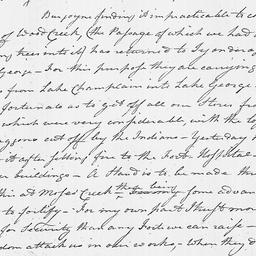 Burgoyne finding it impracticable to c
of Wood Creek, (the Passage of which we had
ing trees into it) has returned to Ticonderog
George - For this purpose they are carrying
s from Lake Champlain into Lake George -
fortunate as to get off all our Stores from
which were very considerable, with the lo
aggons cut off by the Indians - Yesterday
it after setting fire to the Fort Hospital
er buildings - A Stand is to be made
this at Moses Creek that being some advan
to fortify - For my own part I trust mor
for Security than any Fort we can raise -
dom attack us in our works - When they d